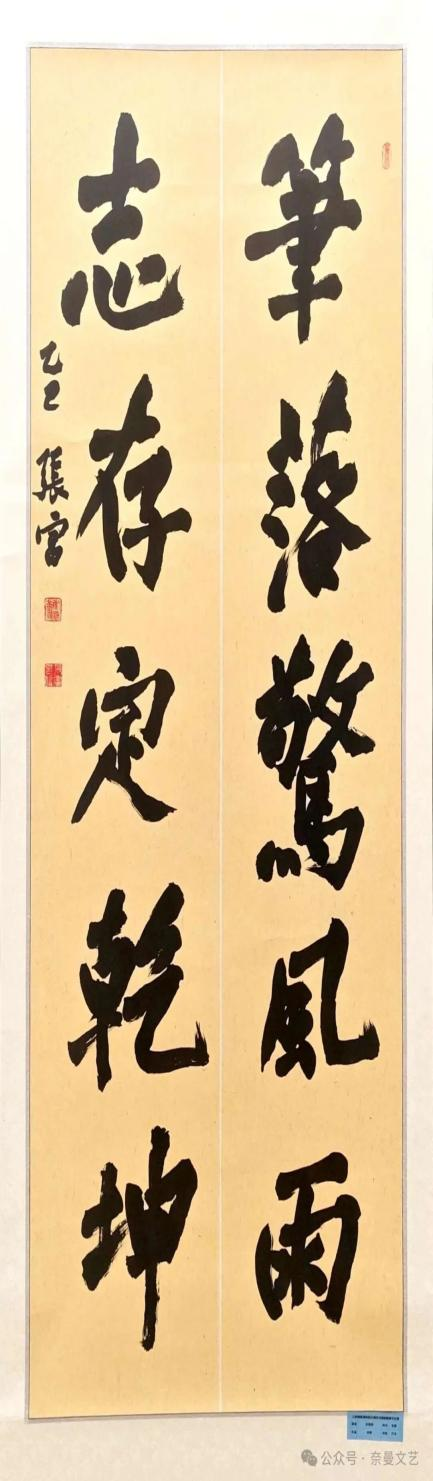 筆落驚風雨
志存定乾坤
乙巳 張宮
公众号·奈曼文艺